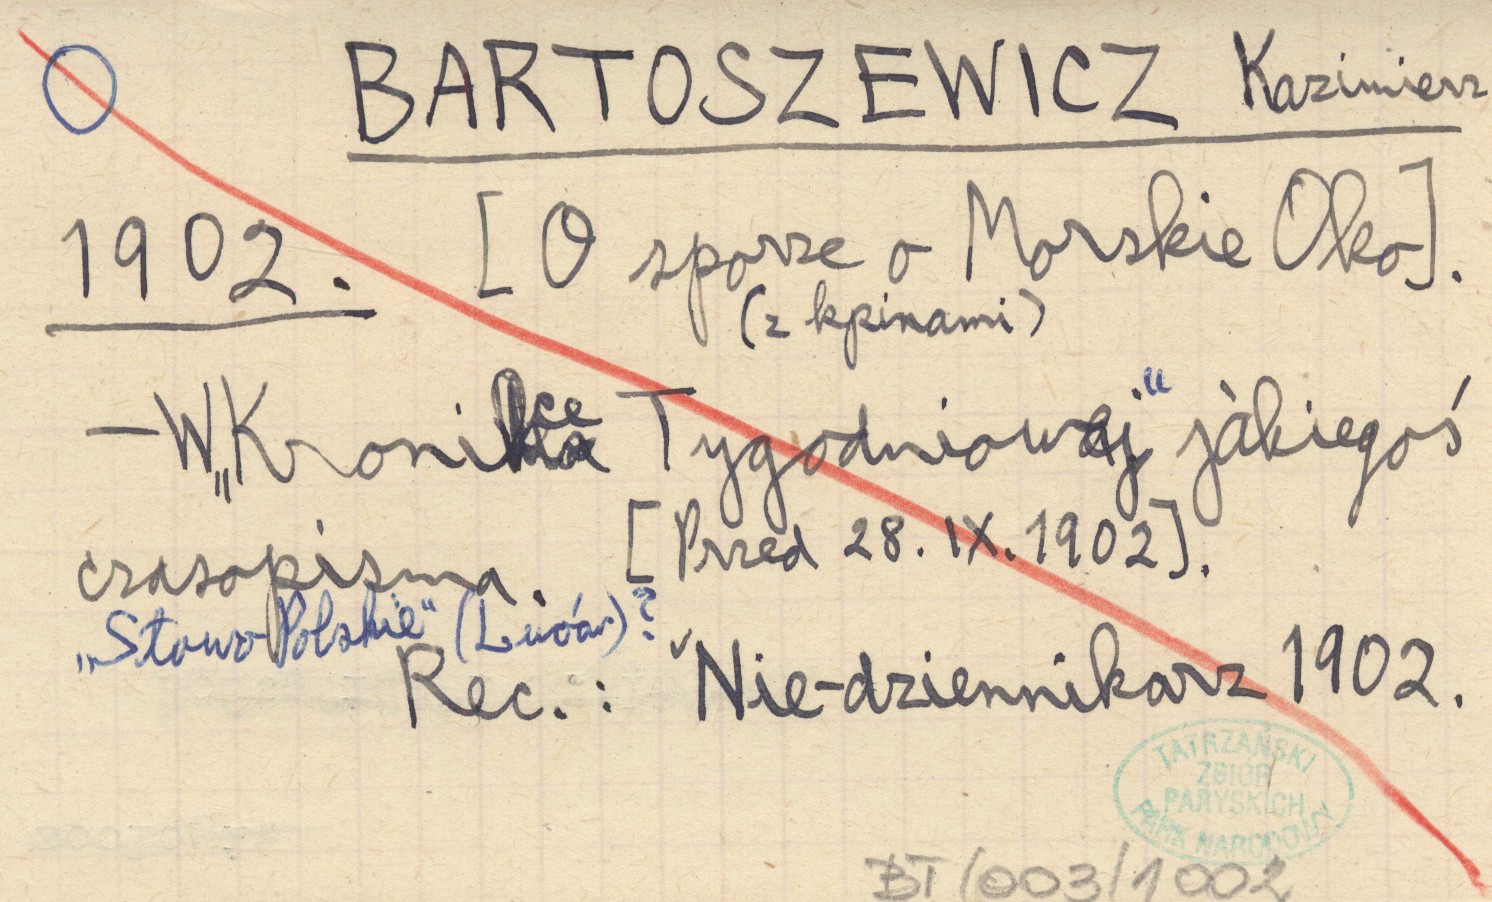 BARTOSZEWICZ Kazimierz
1902. [O sporze o Morskie Oko].
(z kpinami)
— W „Kronice Tygodniowej" jakiegoś
czasopisma. [Przed 28.IX.1902].
„Słowo Polskie" (Lwów)?
Rec.: Nie-dziennikarz 1902.
TATRZAŃSKI
ZBIÓR
PARYSKICH
PARK NARODOWY
BT/003/1002